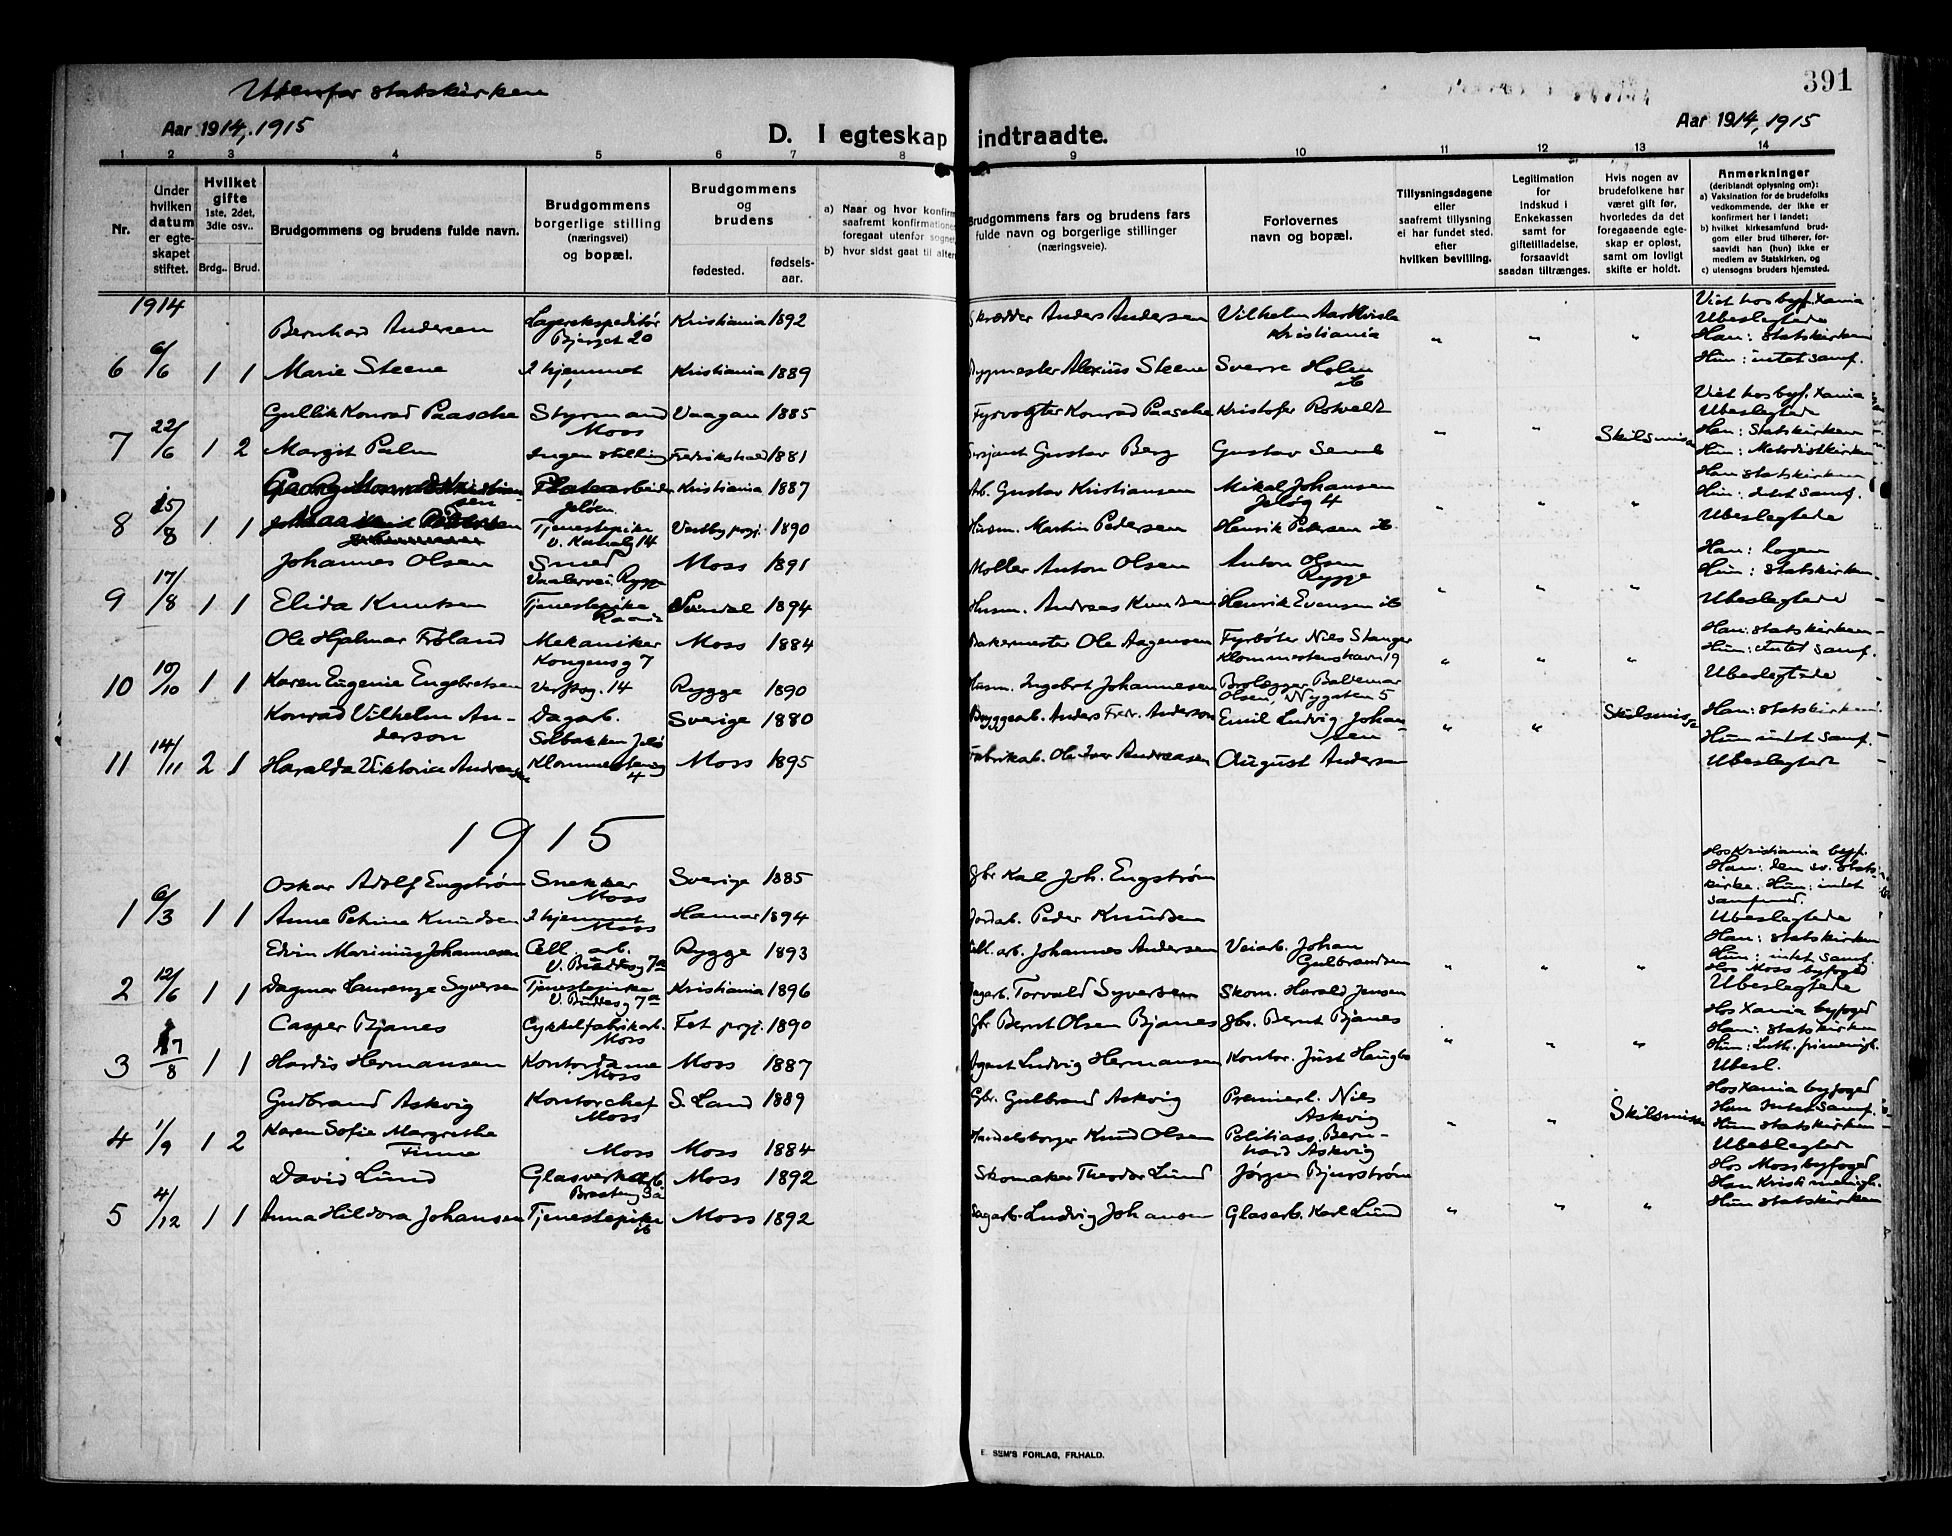 Utenfor statskirken
391
Aar 1914, 1915
Aar 1914, 1915
D. I egteskap indtraadte.
1 2 3 4 5 6 7 8 9 10 11 12 13 14
Nr.
Under hvilken datum er egteskapet stiftet.
Hvilket gifte 1ste, 2det, 3die osv..
Brdg.. Brud.
Brudgommens og brudens fulde navn.
Brudgommens borgerlige stilling (næringsvei) og bopæl.
Brudgommens og brudens
fødested. fødselsaar.
a) Naar og hvor konfirm
saafremt konfirmationen
foregaat utenfor sogne
b) hvor sidst gaat til alter
Brudgommens fars og brudens fars fulde navn og borgerlige stillinger (næringsveie).
Forlovernes navn og bopæl.
Tillysningsdagene eller saafremt tillysning ei har fundet sted. efter hvilken bevilling.
Legitimation for Indskud i Enkekassen samt for giftetilladelse, forsaavidt saadan tiltrænges.
Hvis nogen av brudefolkene har været gift før, hvorledes da det foregaaende egteskap er opløst, samt om lovligt skifte er holdt.
Anmerkninger
(deriblandt oplysning om):
a) Vaksination for de brudefolks vedkommende, der ikke er konfirmert her i landet;
b) hvilket kirkesamfund brudgom eller brud tilhører, forsaavidt han (hun) ikke er medlem av Statskirken, og
c) utensogns bruders hjemsted.
1914
Bernhard Andersen Lagerekspeditør Bjerget 20 Kristiania 1892 Skrædder Anders Andersen Vilhelm Kristiania Viet hos byf. Xania Ubeslegtede Han: Statskirken
6 6/6 1 1 Marie Steene I hjemmet Kristiania 1889 Bygmester Alexius Steene Sverre Holen ib " " " Hun: intet samf.
Gullik Konrad Paasche Styrmand Moss Vaagan 1885 Fyrvogter Konrad Paasche Kristofer Rotvoldt Viet hos byf. Xania Ubeslegtede
7 22/6 1 2 Margit Palm Ingen stilling Fredrikshald 1881 Sersjant Gustav Berg Gustav " " Skilsmisse Han: Statskirken Hun: Metodistkirken
Georg Kristiansen Jeløen Kristiania 1887 Arb. Gustav Kristiansen Mikal Johansen Jeløg 4 Han statskirken Hun: intet samf.
8 15/8 1 1 Tjenestepike v. Kanalg 14 Vestby prgj. 1890 Husm. Martin Pedersen Henrik Petersen ib " " " Ubeslegtede
Johannes Olsen Smed Vaalervei, Rygge Moss 1891 Møller Anton Olsen Anton Olsen Rygge Han: Logen Hun: Statskirken
9 17/8 1 1 Elida Knutsen Tjenestepike Svindal 1894 Husm. Andreas Knudsen Henrik Evensen ib " " " Ubeslegtede
Ole Hjalmar Frøland Mekaniker Kongensg 7 Moss 1884 Bakermester Ole Aagensen Fyrbøter Nils Stanger Han: statskirken Hun: Intet samf.
10 10/10 1 1 Karen Eugenie Engebretsen Verftsg. 14 Rygge 1890 Husm. Ingebrt Johannesen Brolægger Baltemar Olsen, Nygaten 5 " " " Ubeslegtede
Konrad Vilhelm Anderson Dagarb. Solbakken Jelø Sverige 1880 Bryggearb. Anders Fredr. Anderson Emil Ludvig Johansen " " Skilsmisse Han: Statskirken Hun intet samf.
11 14/11 2 1 Haralda Viktoria Andreasen 4 Moss 1895 Fabrikab. Ole Iver Andreasen August Andersen Ubeslegtede
1915
Oskar Adolf Engstrøm Snekker Moss Sverige 1885 Gbr Karl Joh. Engstrøm Hos Kristiania byf. Han: den sv. Statskirke. Hun: intet samfund.
1 6/3 1 1 Anne Petrine Knudsen I hjemmet Moss Hamar 1894 Jordab. Peder Knudsen Ubeslegtede
Edvin Marinius Johannesen Cell. arb. V. Buddesg 7a Rygge 1893 Cell. arb. Johannes Andersen Veiarb. Johan Gulbrandsen Han: Statskirken Hun: intet samf. Hos Moss byfoged
2 12/6 1 1 Dagmar Laurenze Syversen Tjenestepike V. Buddesg 7a Kristiania 1896 Dagarb. Torvald Syversen Skom. Harald Jensen " " " Ubeslegtede
Casper Bjanes Cykkelfabrikarb. Moss Fet prgj. 1890 Gbr Bernt Olsen Bjanes Gbr. Bernt Bjanes Hos Xania byfoged Han: Statskirken
3 17/8 1 1 Hardis Hermansen Kontordame Moss Moss 1887 Agent Ludvig Hermansen Kontor. Just Haugbo " " " Hun: Luth. frimenigh. Ubesl.
Gudbrand Askvig Kontorchef Moss S. Land 1889 Gbr. Gulbrand Askvig Premierl. Nils Askvig Hos Xania byfoged Han Intet Samf.
4 1/9 1 2 Karen Sofie Margrethe Finne Moss Moss 1884 Handelsborger Knud Olsen Politiass. Bernhard Askvig " " Skilsmisse Hun statskirken Ubeslegtede
David Lund Glasverksarb. Brosteng 3a Moss 1892 Skomaker Theodor Lund Jørgen Bjurstrøm Hos Moss byfoged Han Kristi menigh.
5 4/12 1 1 Anna Hildora Johansen Tjenestepike ib Moss 1892 Sagarb. Ludvig Johansen Glasarb. Karl Lund " " " Hun Statskirken
E. SEM'S FORLAG, FR.HALD.